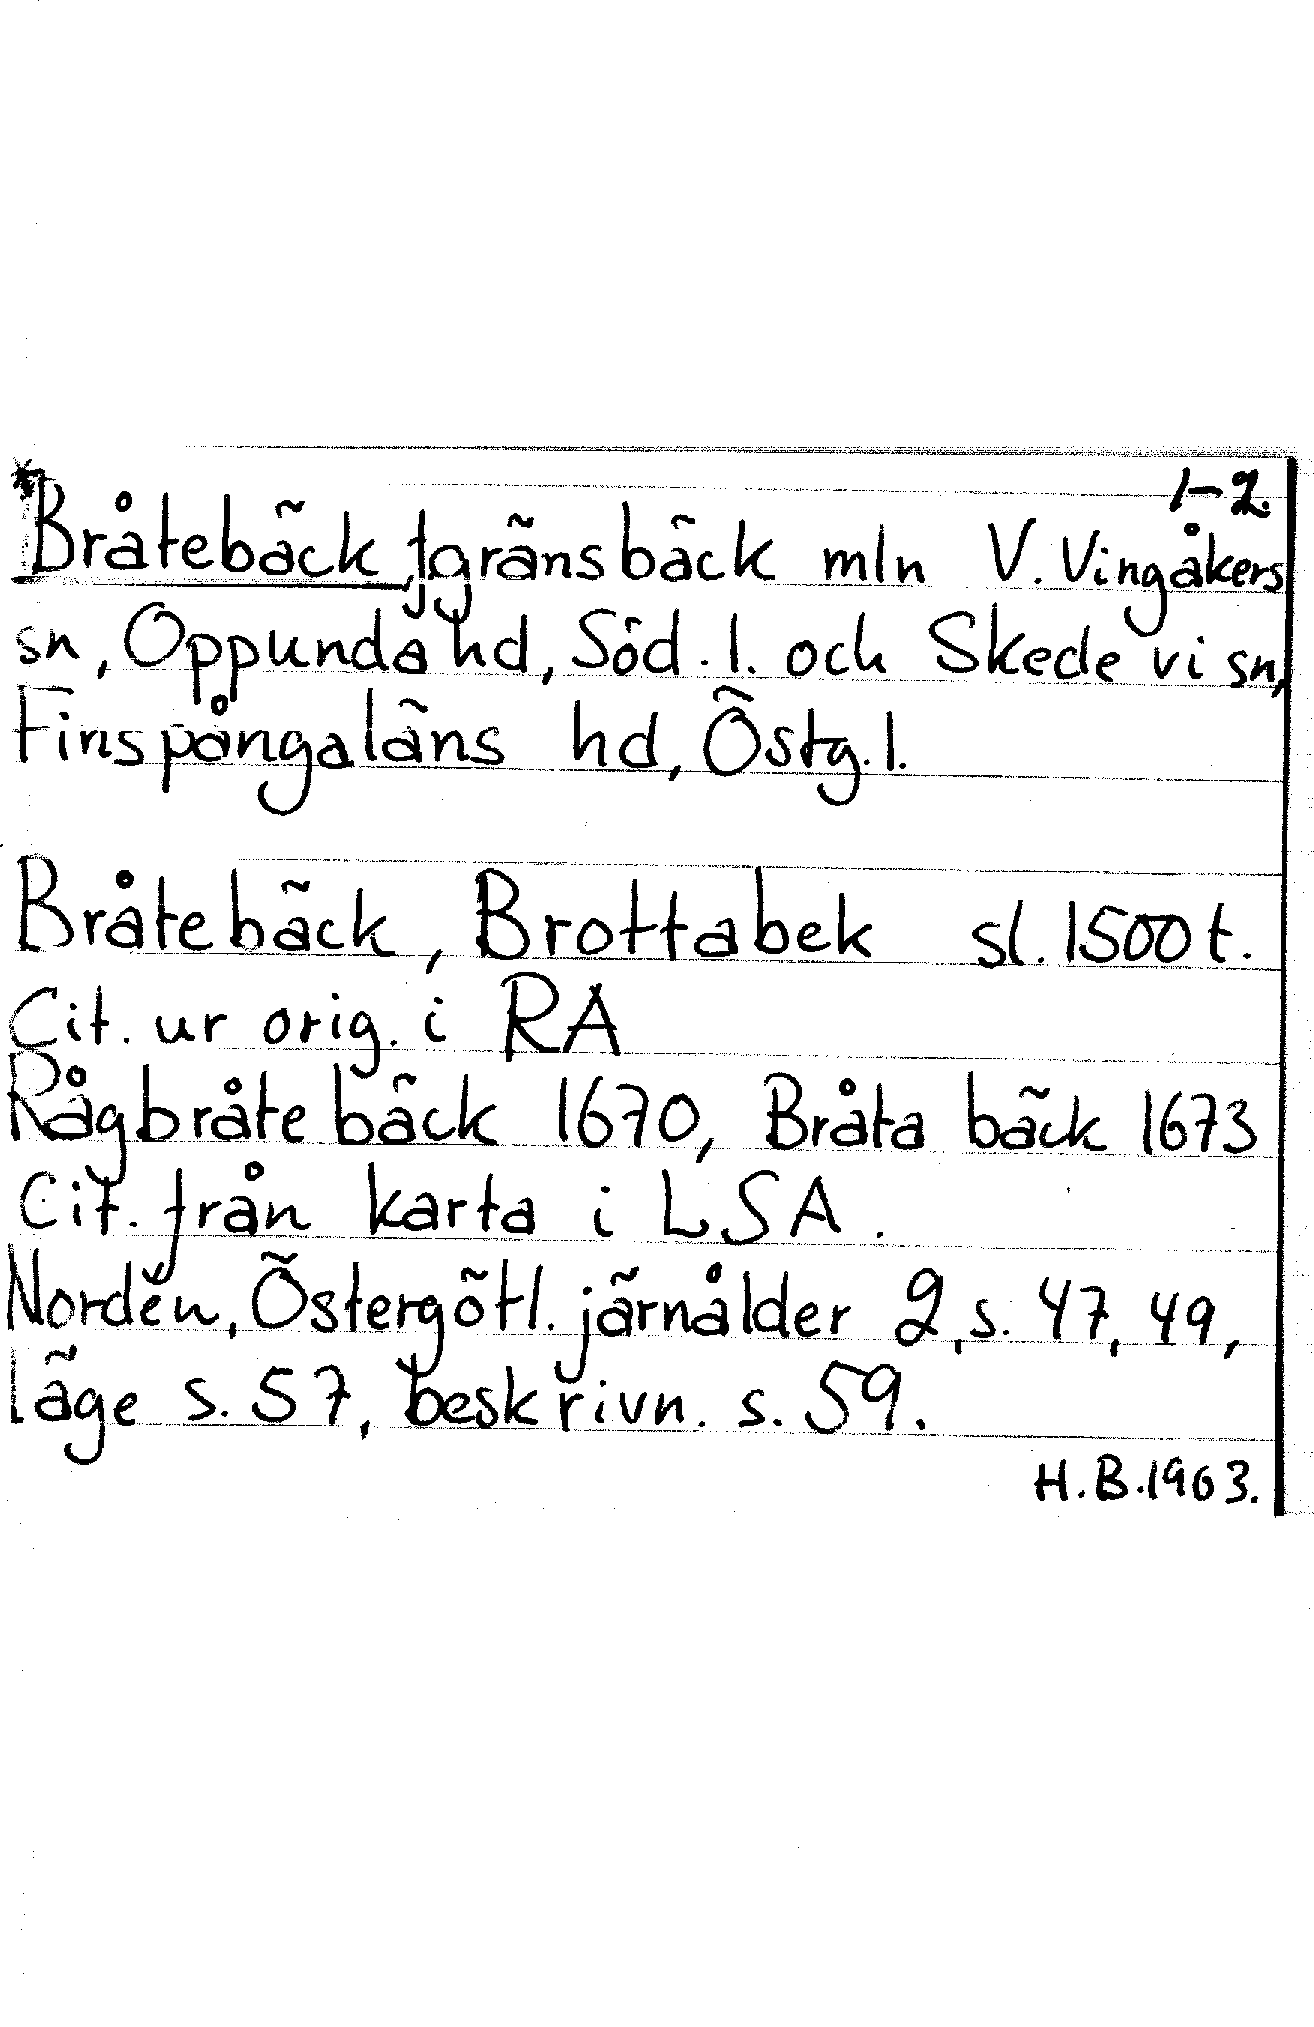 1-2.
*Bråtebäck, gränsbäck mln V. Vingåkers
sn, Oppunda hd, Söd. l. och Skedevi sn,
Finspångaläns hd, Östg. l.
Bråtebäck, Brottabek sl. 1500 t.
Cit. ur orig. i RA
Rågbråte bäck 1670, Bråta bäck 1673
Cit. från karta i LSA.
Nordén, Östergötl. järnålder 2, s. 47, 49,
läge s. 57, beskrivn. s. 59.
H.B. 1963.